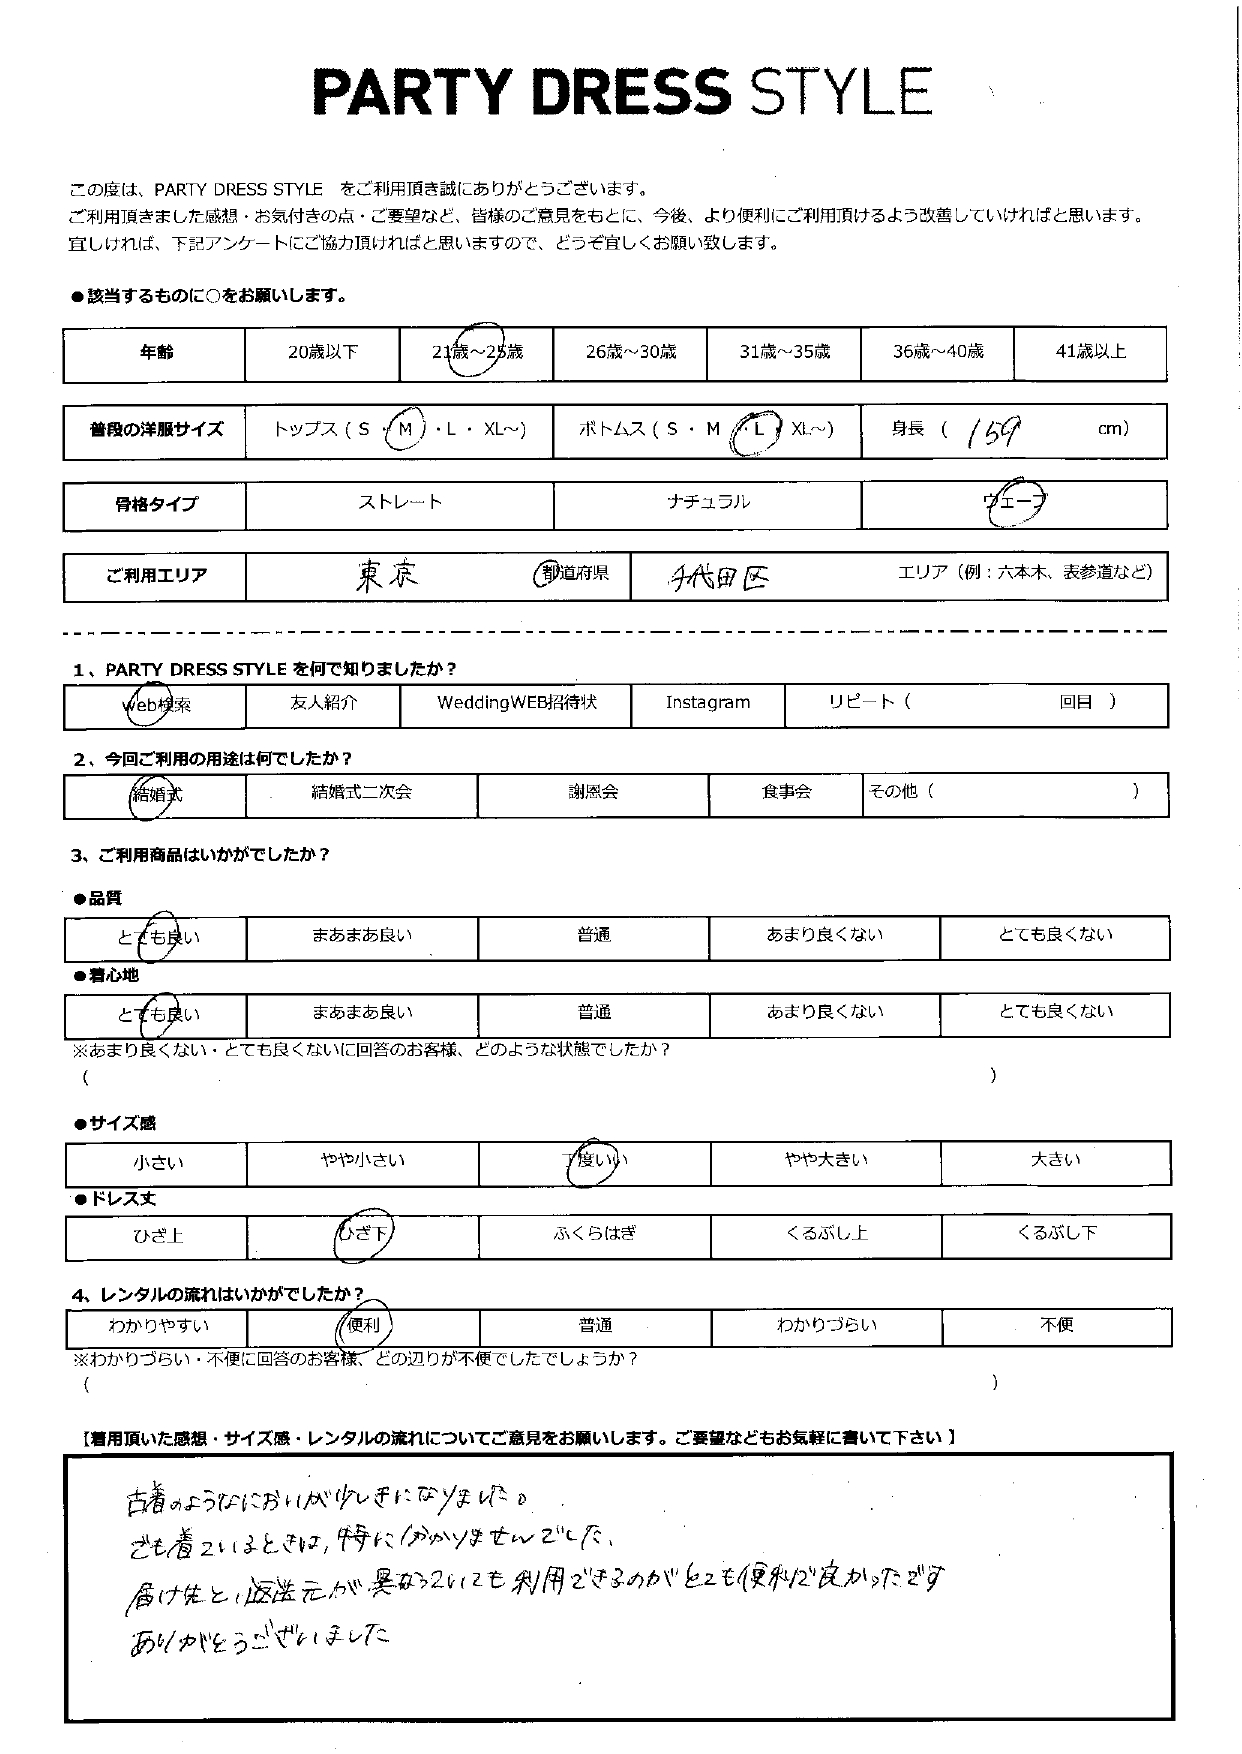 PARTY DRESS STYLE
この度は、PARTY DRESS STYLE　をご利用頂き誠にありがとうございます。
ご利用頂きました感想・お気付きの点・ご要望など、皆様のご意見をもとに、今後、より便利にご利用頂けるよう改善していければと思います。
宜しければ、下記アンケートにご協力頂ければと思いますので、どうぞ宜しくお願い致します。
●該当するものに○をお願いします。
年齢 20歳以下 21歳～25歳 26歳～30歳 31歳～35歳 36歳～40歳 41歳以上
普段の洋服サイズ トップス ( S ・ M ・ L ・ XL～) ボトムス ( S ・ M ・ L ・ XL～) 身長 ( 159 cm)
骨格タイプ ストレート ナチュラル ウェーブ
ご利用エリア 東京 都道府県 千代田区 エリア（例：六本木、表参道など）
1、PARTY DRESS STYLE を何で知りましたか？
web検索 友人紹介 WeddingWEB招待状 Instagram リピート（ 回目 ）
2、今回ご利用の用途は何でしたか？
結婚式 結婚式二次会 謝恩会 食事会 その他（ ）
3、ご利用商品はいかがでしたか？
●品質
とても良い まあまあ良い 普通 あまり良くない とても良くない
●着心地
とても良い まあまあ良い 普通 あまり良くない とても良くない
※あまり良くない・とても良くないに回答のお客様、どのような状態でしたか？
( )
●サイズ感
小さい やや小さい 丁度いい やや大きい 大きい
●ドレス丈
ひざ上 ひざ下 ふくらはぎ くるぶし上 くるぶし下
4、レンタルの流れはいかがでしたか？
わかりやすい 便利 普通 わかりづらい 不便
※わかりづらい・不便に回答のお客様、どの辺りが不便でしたでしょうか？
( )
【着用頂いた感想・サイズ感・レンタルの流れについてご意見をお願いします。ご要望などもお気軽に書いて下さい 】
古着のようなにおいが少しきになりました。
でも着ているときは、特に分かりませんでした、
届け先と、返送元が異なっていても利用できるのがとても便利で良かったです
ありがとうございました